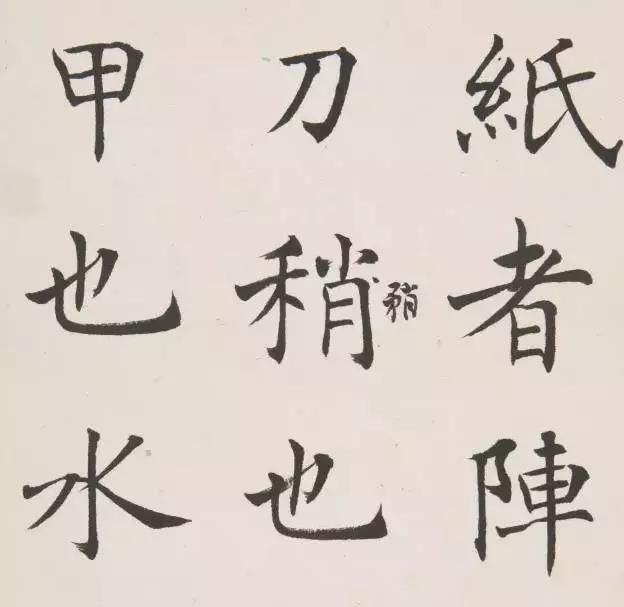 紙者陣
刀稍也
矟
甲也水